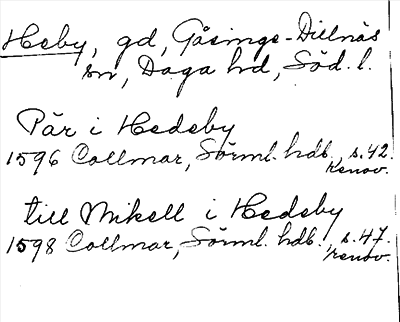 Heby, gd, Gåsinge-Dillnäs
sn, Daga hd, Söd. l.
Pär i Hedeby
1596 Collmar, Sörml. hdb., s. 42.
Renov.
till Mikell i Hedeby
1598 Collmar, Sörml. hdb., s. 47.
Renov.